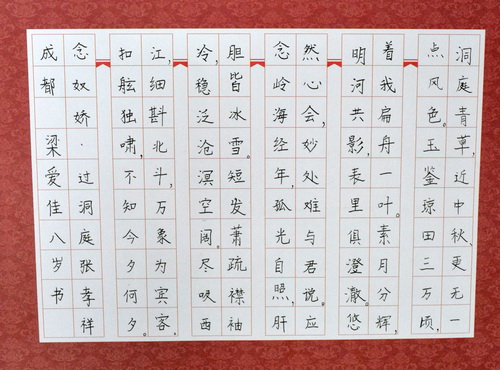 洞庭青草,近中秋,更无一
点风色。玉鉴琼田三万顷,
着我扁舟一叶。素月分辉,
明河共影,表里俱澄澈。悠
然心会,妙处难与君说。应
念岭海经年,孤光自照,肝
胆皆冰雪。短发萧疏襟袖
冷,稳泛沧溟空阔。尽吸西
江,细斟北斗,万象为宾客,
扣舷独啸,不知今夕何夕。
念奴娇·过洞庭张孝祥
成都 梁爱佳八岁书